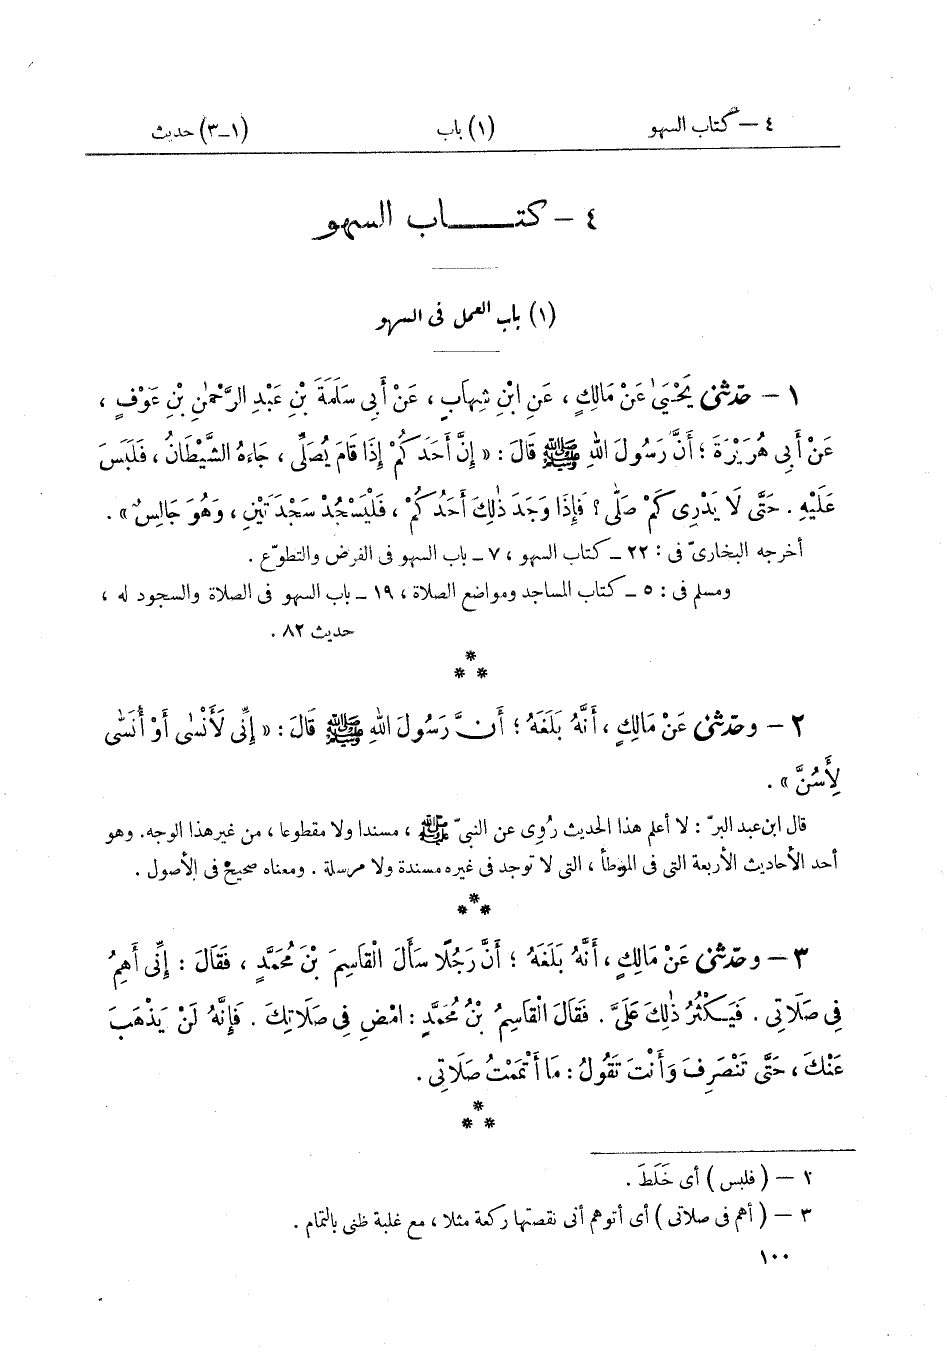 ٤ – كتاب السهو (١) باب (١–٣) حديث
٤ – كتـــاب السهو
(١) باب العمل فى السهو
١ – حدّثنى يَحْيَىٰ عَنْ مَالِكٍ ، عَنِ ابْنِ شِهَابٍ ، عَنْ أَبِى سَلَمَةَ بْنِ عَبْدِ الرَّحْمٰنِ بْنِ عَوْفٍ ،
عَنْ أَبِى هُرَيْرَةَ ؛ أَنَّ رَسُولَ اللهِ ﷺ قَالَ : « إِنَّ أَحَدَكُمْ إِذَا قَامَ يُصَلِّى ، جَاءَهُ الشَّيْطَانُ ، فَلَبَسَ
عَلَيْهِ . حَتَّى لَا يَدْرِى كَمْ صَلَّى ؟ فَإِذَا وَجَدَ ذٰلِكَ أَحَدُكُمْ ، فَلْيَسْجُدْ سَجْدَتَيْنِ ، وَهُوَ جَالِسٌ » .
أخرجه البخارىّ فى : ٢٢ – كتاب السهو ، ٧ – باب السهو فى الفرض والتطوّع .
ومسلم فى : ٥ – كتاب المساجد ومواضع الصلاة ، ١٩ – باب السهو فى الصلاة والسجود له ،
حديث ٨٢ .
*
* *
٢ – وحدّثنى عَنْ مَالِكٍ ، أَنَّهُ بَلَغَهُ ؛ أَنَّ رَسُولَ اللهِ ﷺ قَالَ : « إِنِّى لَأَنْسٰى أَوْ أُنَسَّى
لِأَسُنَّ » .
قال ابن عبد البرّ : لا أعلم هذا الحديث رُوِى عن النبىّ ﷺ ، مسندا ولا مقطوعا ، من غير هذا الوجه . وهو
أحد الأحاديث الأربعة التى فى الموطأ ، التى لا توجد فى غيره مسندة ولا مرسلة . ومعناه صحيح فى الأصول .
*
* *
٣ – وحدّثنى عَنْ مَالِكٍ ، أَنَّهُ بَلَغَهُ ؛ أَنَّ رَجُلًا سَأَلَ الْقَاسِمَ بْنَ مُحَمَّدٍ ، فَقَالَ : إِنِّى أَهِمُ
فِى صَلَاتِى . فَيَكْثُرُ ذٰلِكَ عَلَىَّ . فَقَالَ الْقَاسِمُ بْنُ مُحَمَّدٍ : امْضِ فِى صَلَاتِكَ . فَإِنَّهُ لَنْ يَذْهَبَ
عَنْكَ ، حَتَّى تَنْصَرِفَ وَأَنْتَ تَقُولُ : مَا أَتْمَمْتُ صَلَاتِى .
*
* *
٢ – ( فلبس ) أى خَلَطَ .
٣ – ( أهم فى صلاتى ) أى أتوهم أنى نقصتها ركعة مثلا ، مع غلبة ظنى بالتمام .
١٠٠